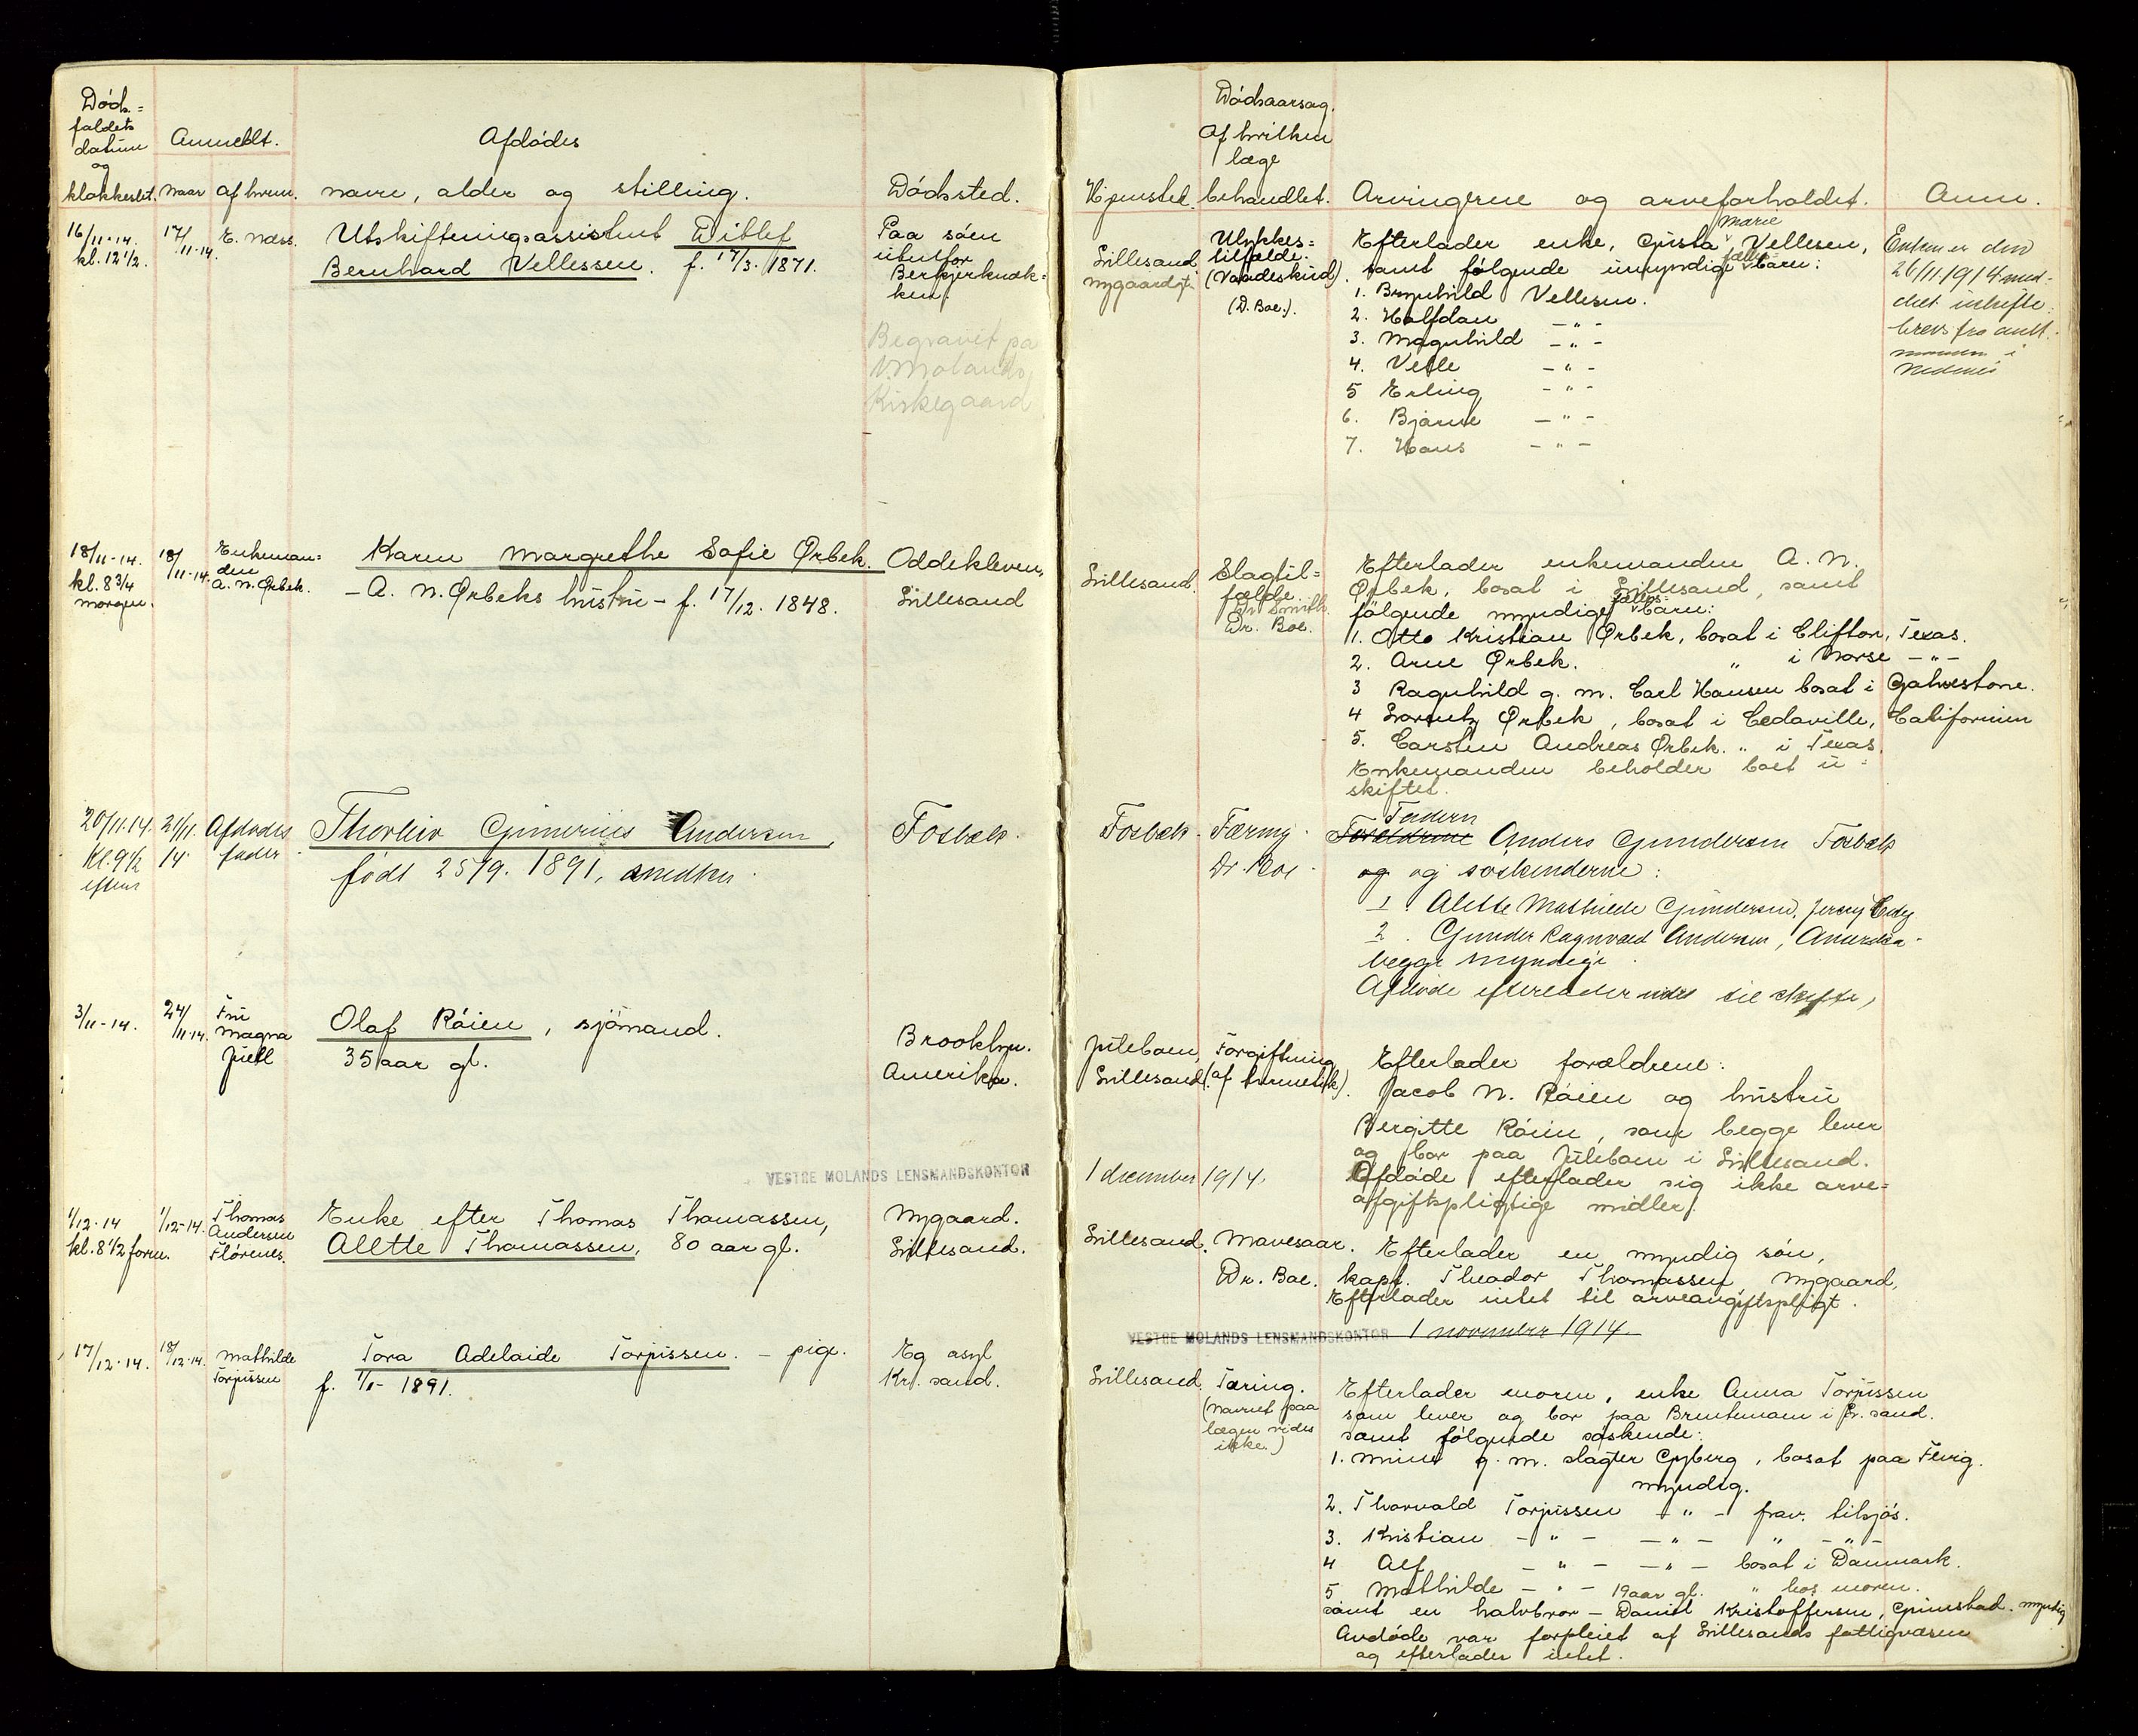 Døds=
faldets
datum
og
klokkeslet.
Anmeldt.
naar
af hvem.
Afdødes
navn, alder og stilling.
Dødssted.
16/11-14.
kl. 12 1/2.
17/
11-14.
E. Næss.
Utskiftningsassistent Ditlef
Bernhard Vellessen. f. 17/3. 1871.
Paa søen
utenfor
ken.
Begravet på
V. Molands
Kirkegaard
18/11-14.
kl. 8 3/4
morgen.
18/
11-14.
Enkeman=
den
A. N. Ørbek.
Karen Margrethe Sofie Ørbek.
- A. N. Ørbeks hustru - f. 17/12. 1848.
Oddekleven,
Lillesand
20/11.14.
Kl. 9 1/2
21/11.
14
Afdødes
fader
Andersen,
født 25/9. 1891, snedker.
Fosbæk.
3/11-14.
24/
11-14.
Fru
Magna
Juell
Olaf Røien, sjømand.
35 aar gl.
Brooklyn.
Amerika.
VESTRE MOLANDS LENSMANDSKONTOR
1/12-14
kl. 8 1/2 form.
1/12-14.
Thomas
Andersen
Flørenes.
Enke efter Thomas Thomassen,
Alette Thomassen, 80 aar gl.
Nygaard.
Lillesand.
17/12-14.
18/
12-14.
Mathilde
Torjussen
Tora Adelaide Torjussen. - pige.
f. 1891.
Eg asyl
Kr. sand.
Hjemsted.
Dødsaarsag.
Af hvilken
læge
behandlet.
Arvingerne og arveforholdet.
Anm.
Lillesand
Nygaard
Ulykkes=
tilfælde.
(Vaadeskud).
(D. Boe.).
Marie
Efterlader enke, Gusta Vellesen,
fælles
samt følgende umyndige barn:
1. Brynhild Vellesen.
2. Halfdan - " -
3. Magnhild - " -
4. Velle - " -
5 Erling - " -
6. Bjarne - " -
7. Hans - " -
Enken er den
26/11.1914 med-
delt uskifte-
brev fra amt-
manden i
Nedenes
Lillesand.
Slagtil=
fælde.
Dr. Smith.
Dr. Boe.
Efterlader enkemanden A. N.
Ørbek, bosat i Lillesand, samt
fælles=
følgende myndige barn:
1. Otto Kristian Ørbek, bosat i Clifton, Texas.
2. Arne Ørbek. " i Norse - " -
3 Ragnhild g. m. Carl Hansen bosat i Galvestone.
4 Lorentz Ørbek, bosat i Cedaville, Californien
5. Carsten Andreas Ørbek. " i Texas.
Enkemanden beholder boet u=
skiftet.
Fosbæk.
Tæring.
Dr. Boe.
Faderen
Forældrene Anders Gundersen Fosbæk
og og søskenderne:
1. Alette Mathilde Gundersen, Jersey City
2. Gunder Ragnvald Andersen, Amerika.
begge myndige.
Afdøde efterlader intet til skifte,
Julebaen,
Lillesand.
Forgiftning
(af hermetik).
Efterlader forældrene:
Jacob N. Røien og hustru
Bergitte Røien, som begge lever
og bor paa Julebaen i Lillesand.
Afdøde efterlader sig ikke arve=
afgiftspligtige midler.
1 december 1914.
Lillesand.
Mavesaar.
Dr. Boe.
Efterlader en myndig søn,
kapt. Theodor Thomassen, Nygaard,
Efterlader intet til arveavgiftspligt.
VESTRE MOLANDS LENSMANDSKONTOR 1 november 1914.
Lillesand.
Tæring.
(navnet paa
lægen vides
ikke.)
Efterlader moren, enke Anna Torjussen
som lever og bor paa i L. sand.
samt følgende søskende:
1. g. m. slagter Gyberg, bosat paa Fevig.
myndig.
2. Thorvald Torjussen - " - frav. tilsjøs.
3. Kristian - " - - " - " - " -
4 Alf - " - - " - bosat i Danmark.
5 Mathilde - " - 19 aar gl. " hos moren.
samt en halvbror - Daniel Kristoffersen, Grimstad. myndig
Avdøde var forpleiet af Lillesands fattigvæsen
og efterlader intet.